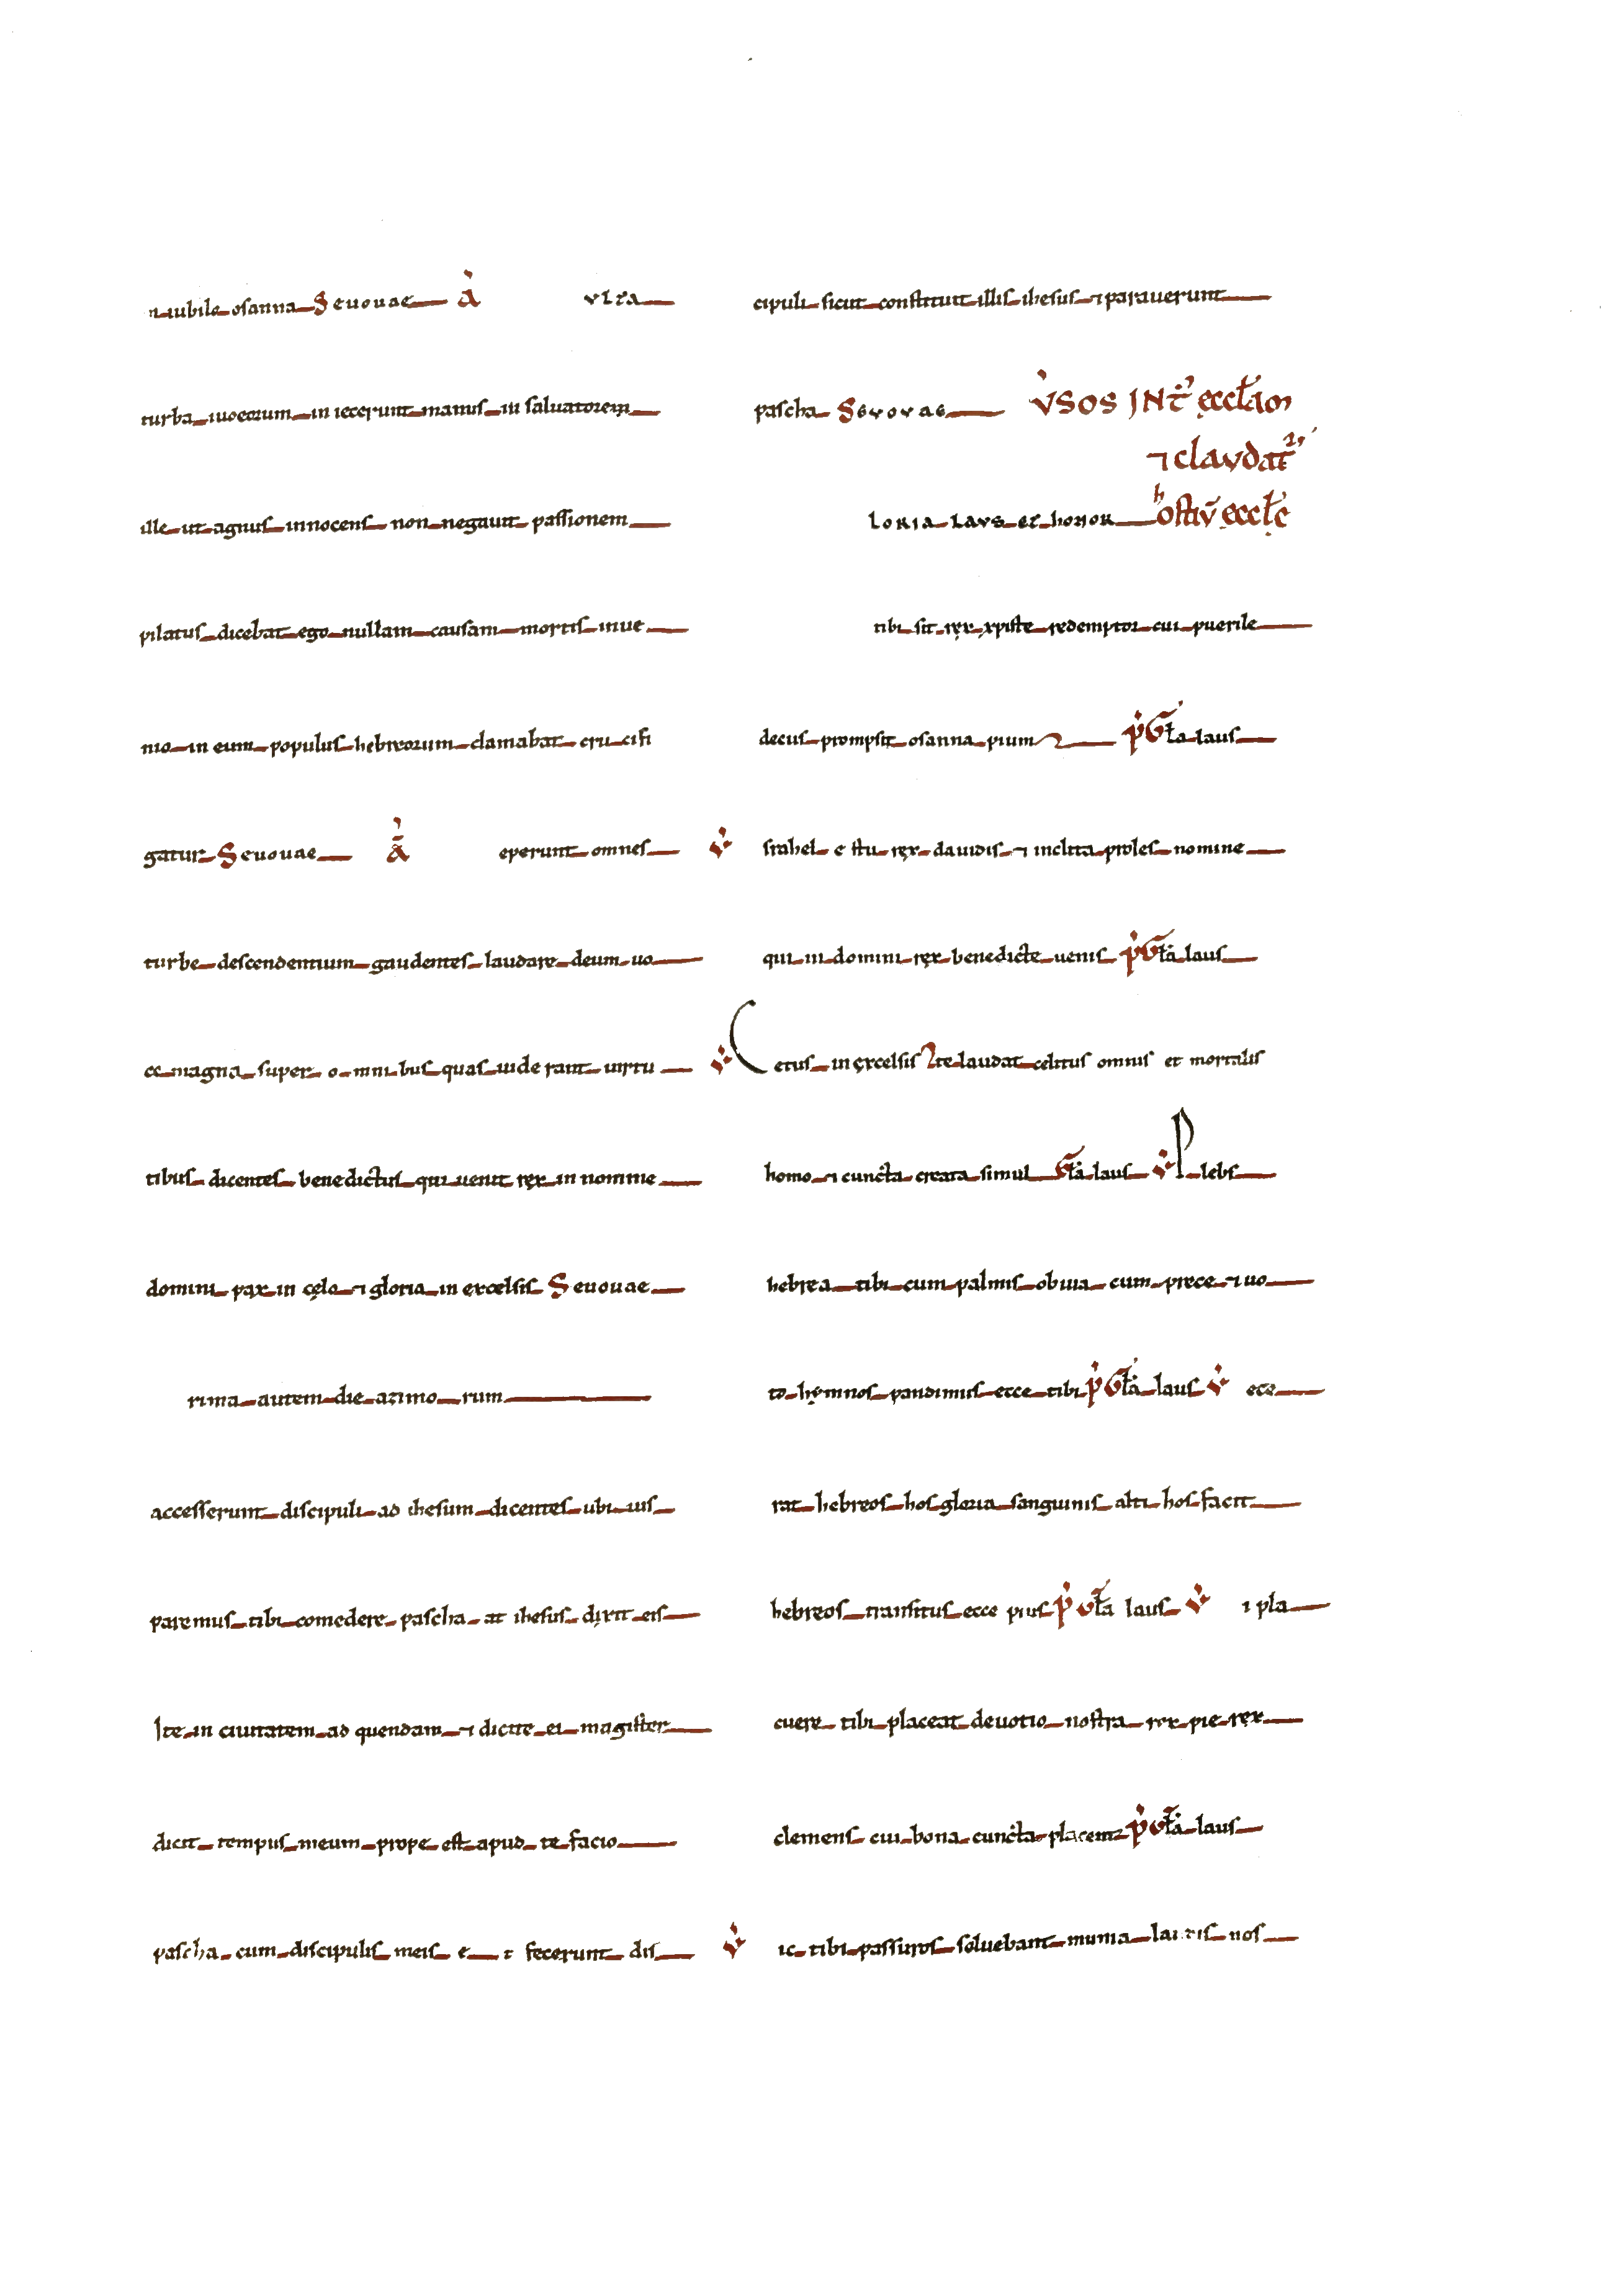 n iubile osanna Seuouae A ulta
turba iudeorum in iecerunt manus in saluatorem
ille ut agnus innocens non negauit passionem
pilatus dicebat ego nullam causam mortis inue
nio in eum populus hebreorum clamabat cru cifi
gatur Seuouae A eperunt omnes
turbe descendentium gaudentes laudare deum uo
ce magna super o mni bus quas uide rant uirtu
tibus dicentes benedictus qui uenit rex in nomine
domini pax in cęlo ⁊ gloria in excelsis Seuouae
rima autem die azimo rum
accesserunt discipuli ad ihesum dicentes ubi uis
paremus tibi comedere pascha at ihesus dixit eis
Ite in ciuitatem ad quendam ⁊ dicite ei magister
dicit tempus meum prope est apud te facio
pascha cum discipulis meis e t fecerunt dis
cipuli sicut constituit illis ihesus ⁊ parauerunt
pascha Seuouae V̓SOS INT̄ ęccl̄am
⁊ claudat̄
loria laus et honor hostiū ęccl̄ę
tibi sit rex xpiste redemptor cui puerile
decus prompsit osanna pium P Gl̄a laus
V srahel e s tu rex dauidis ⁊ inclita proles nomine
qui in domini rex benedicte uenis P Gl̄a laus
V Cetus in excelsis te laudat celitus omnis et mortalis
homo ⁊ cuncta creata simul Gl̄a laus V Plebs
hebrea tibi cum palmis obuia cum prece ⁊ uo
to hęmnos pandimus ecce tibi P Gl̄a laus V ece
rat hebreos hos gloria sanguinis alti hos facit
hebreos transitus ecce pius P Gl̄a laus V i pla
cuere tibi placeat deuotio nostra rex pie rex
clemens cui bona cuncta placent P Gl̄a laus
V ic tibi passuros soluebant munia laudis nos